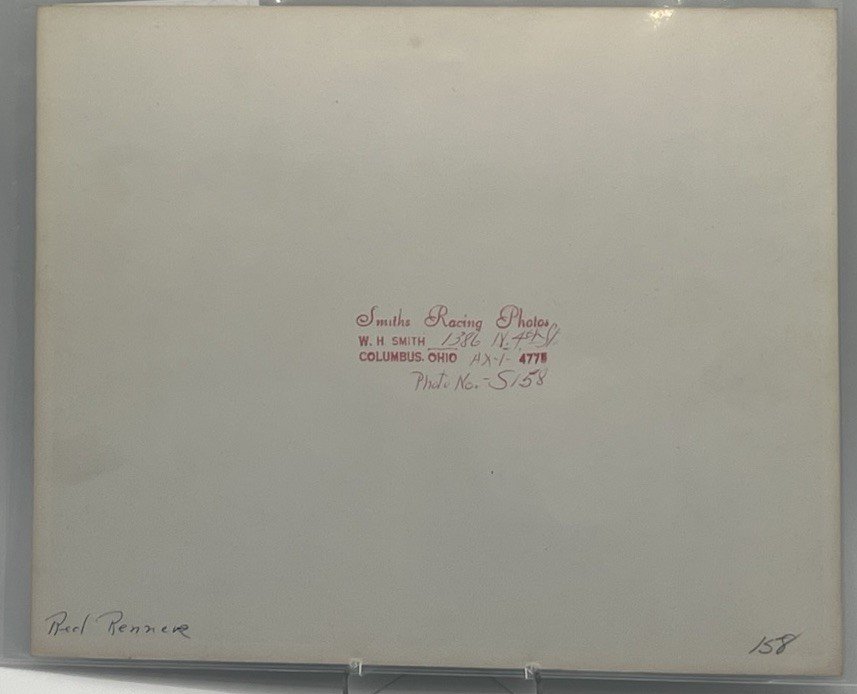 Smiths Racing Photos
W. H. SMITH 1386 N. 4th St.
COLUMBUS, OHIO AX-1- 4775
Photo No.- S158
Red Renner
158